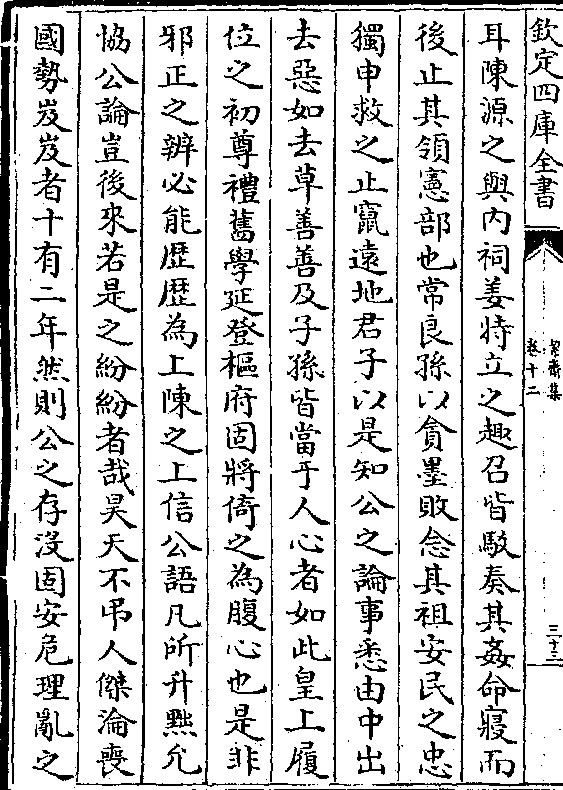 欽定四庫全書
絜齋集
卷十二
三十三
耳陳源之與內祠姜特立之趣召皆駮奏其姦命寢而
後止其領憲部也常良孫以貪墨敗念其祖安民之忠
獨申救之止竄遠地君子以是知公之論事悉由中出
去惡如去草善善及子孫皆當乎人心者如此皇上履
位之初尊禮舊學延登樞府固將倚之為腹心也是非
邪正之辨必能歴歴為上陳之上信公語凡所升黜允
恊公論豈後來若是之紛紛者哉昊天不弔人傑淪喪
國勢岌岌者十有二年然則公之存沒固安危理亂之